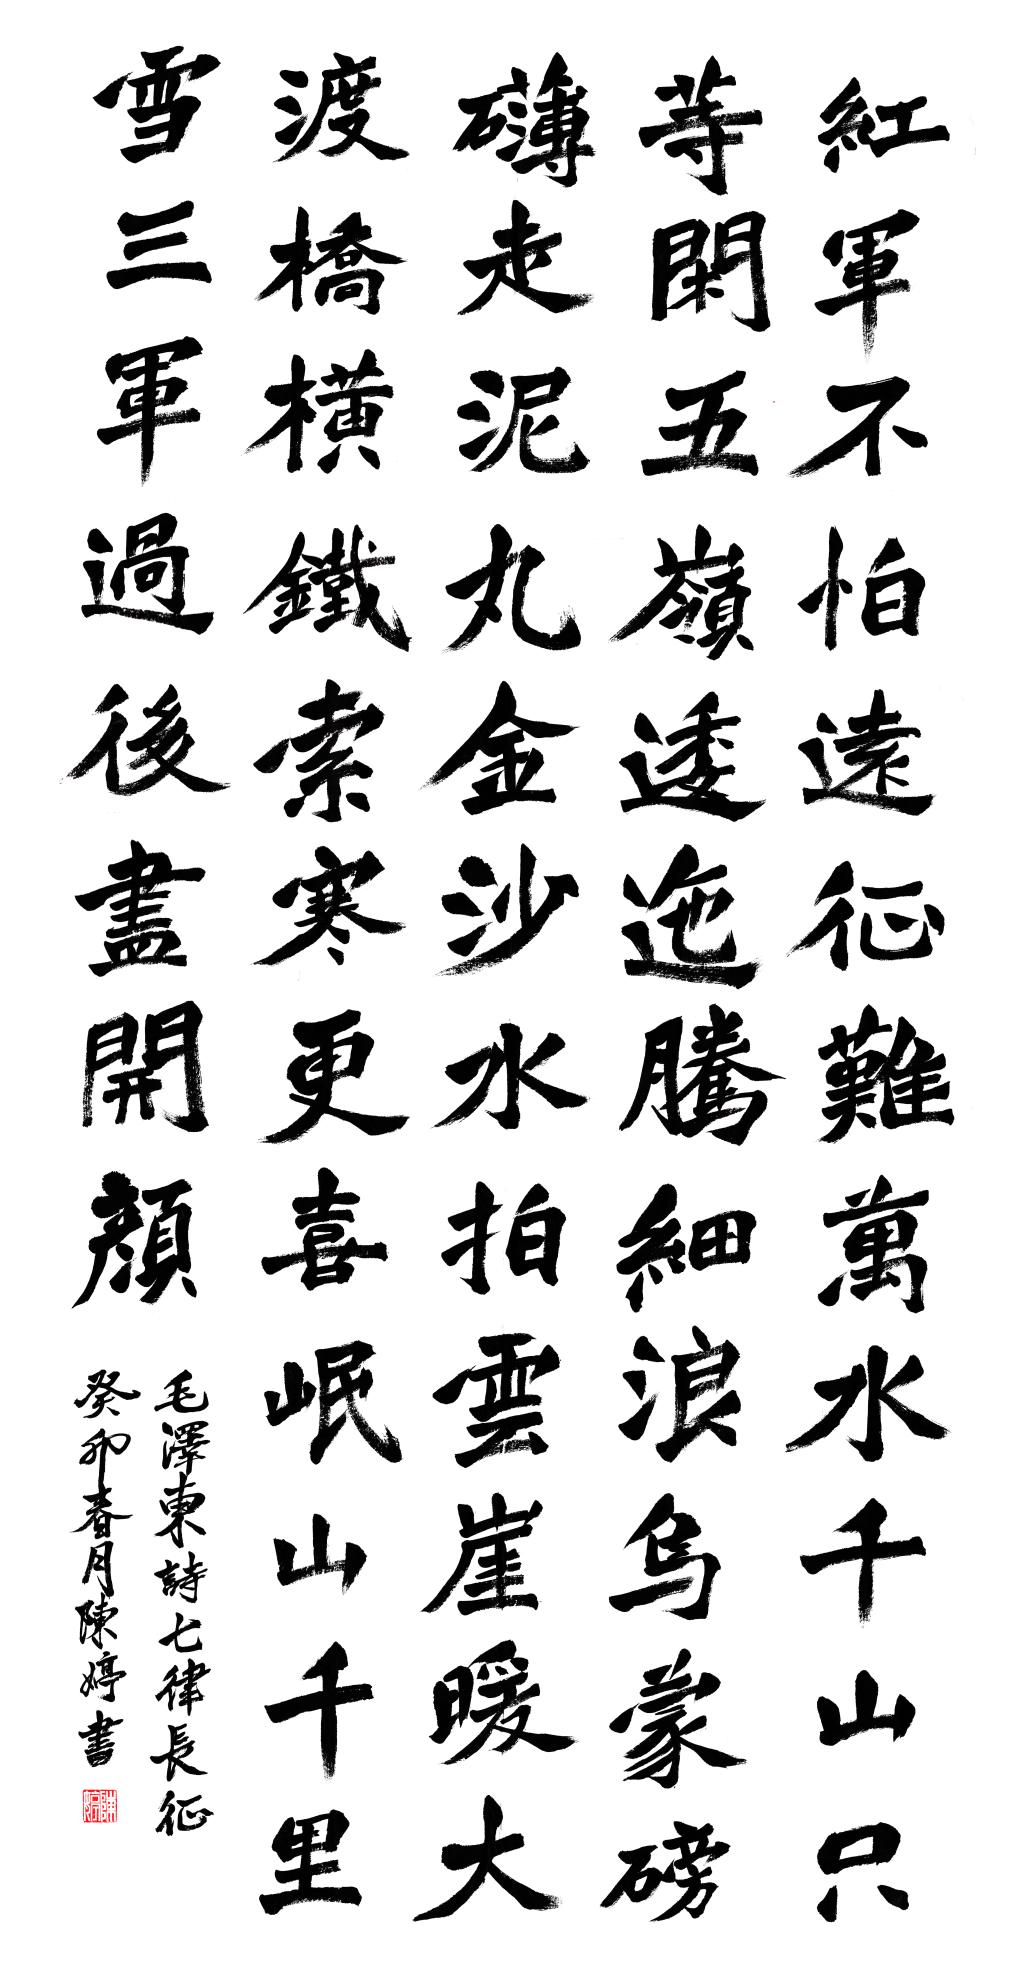 紅軍不怕遠征難萬水千山只
等閑五嶺逶迤騰細浪烏蒙磅
礴走泥丸金沙水拍雲崖暖大
渡橋橫鐵索寒更喜岷山千里
雪三軍過後盡開顏
毛澤東詩七律長征
癸卯春月陳婷書
陳婷